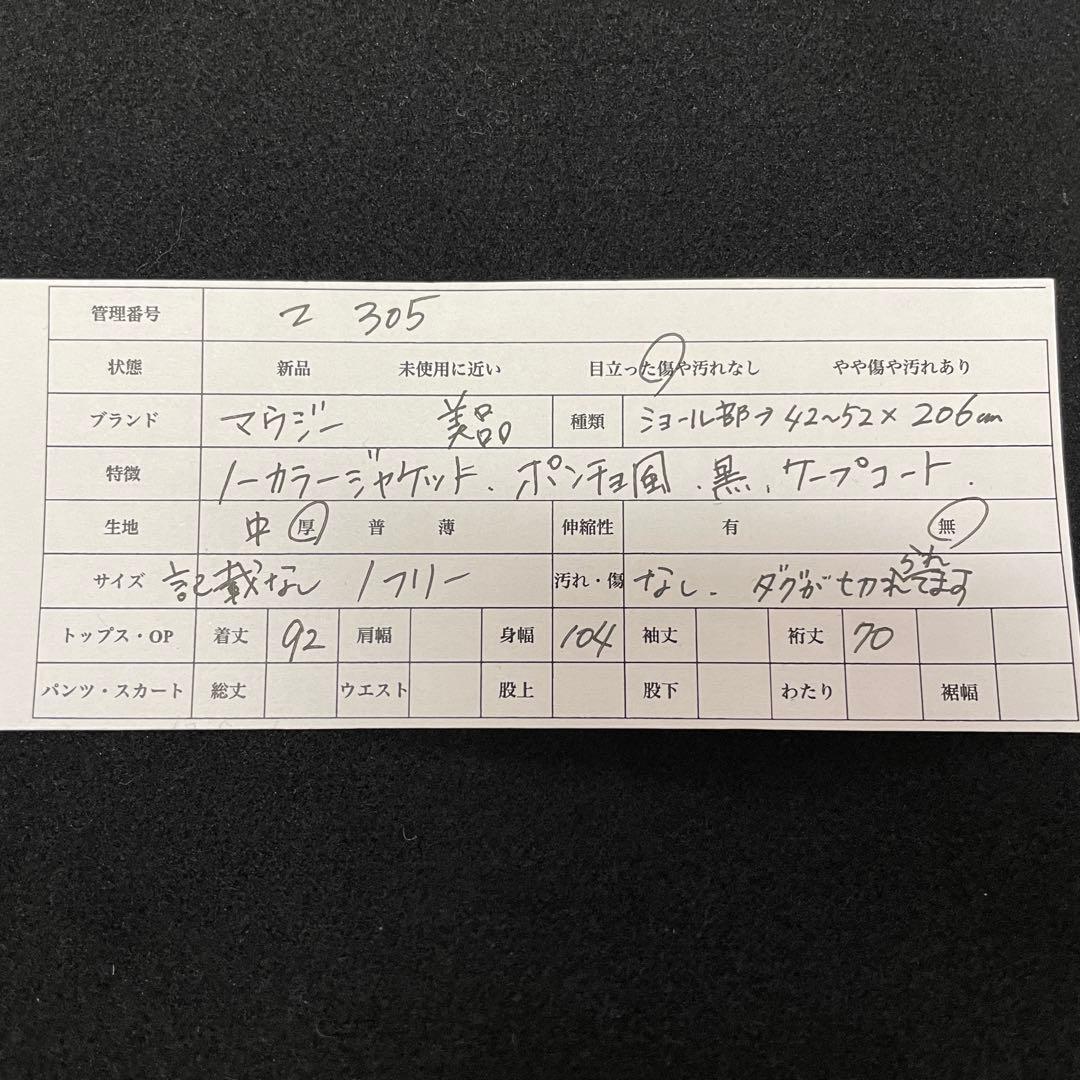 管理番号 マ 305
状態 新品 未使用に近い 目立った傷や汚れなし やや傷や汚れあり
ブランド マウジー 美品 種類 ショール部→42~52×206cm
特徴 ノーカラージャケット、ポンチョ風、黒、ケープコート、
生地 中 厚 普 薄 伸縮性 有 無
サイズ 記載なし/フリー 汚れ・傷 なし、タグが切られてます
トップス・OP 着丈 92 肩幅 身幅 104 袖丈 裄丈 70
パンツ・スカート 総丈 ウエスト 股上 股下 わたり 裾幅